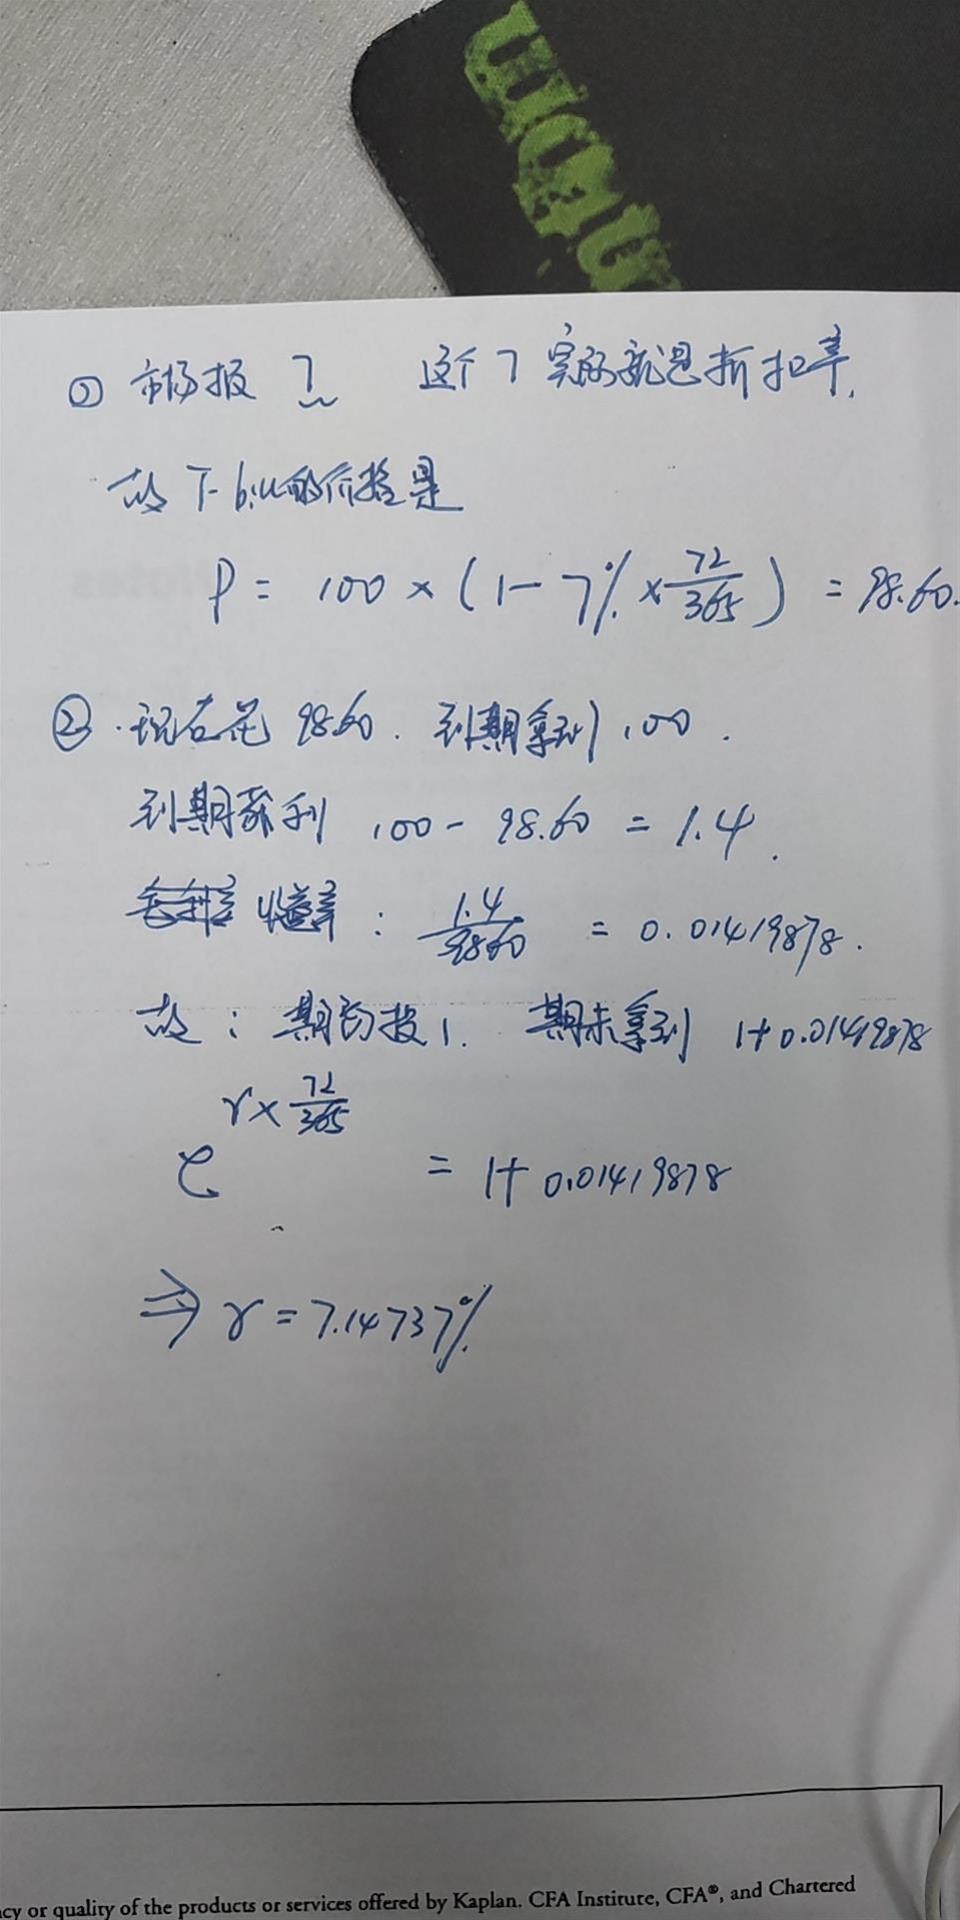 ① 市场报 7 这个7 实际就是折扣率.
故 T-bill的价格是
P = 100 × (1 - 7% × 72/365) = 98.60.
② 现在花 98.60. 到期拿到 100.
到期获利 100 - 98.60 = 1.4.
收益率: 1.4/98.60 = 0.01419878.
故: 期初投1. 期末拿到 1+0.01419878
e^(r×72/365) = 1+0.01419878
⇒ r = 7.14737%
cy or quality of the products or services offered by Kaplan. CFA Institute, CFA®, and Chartered